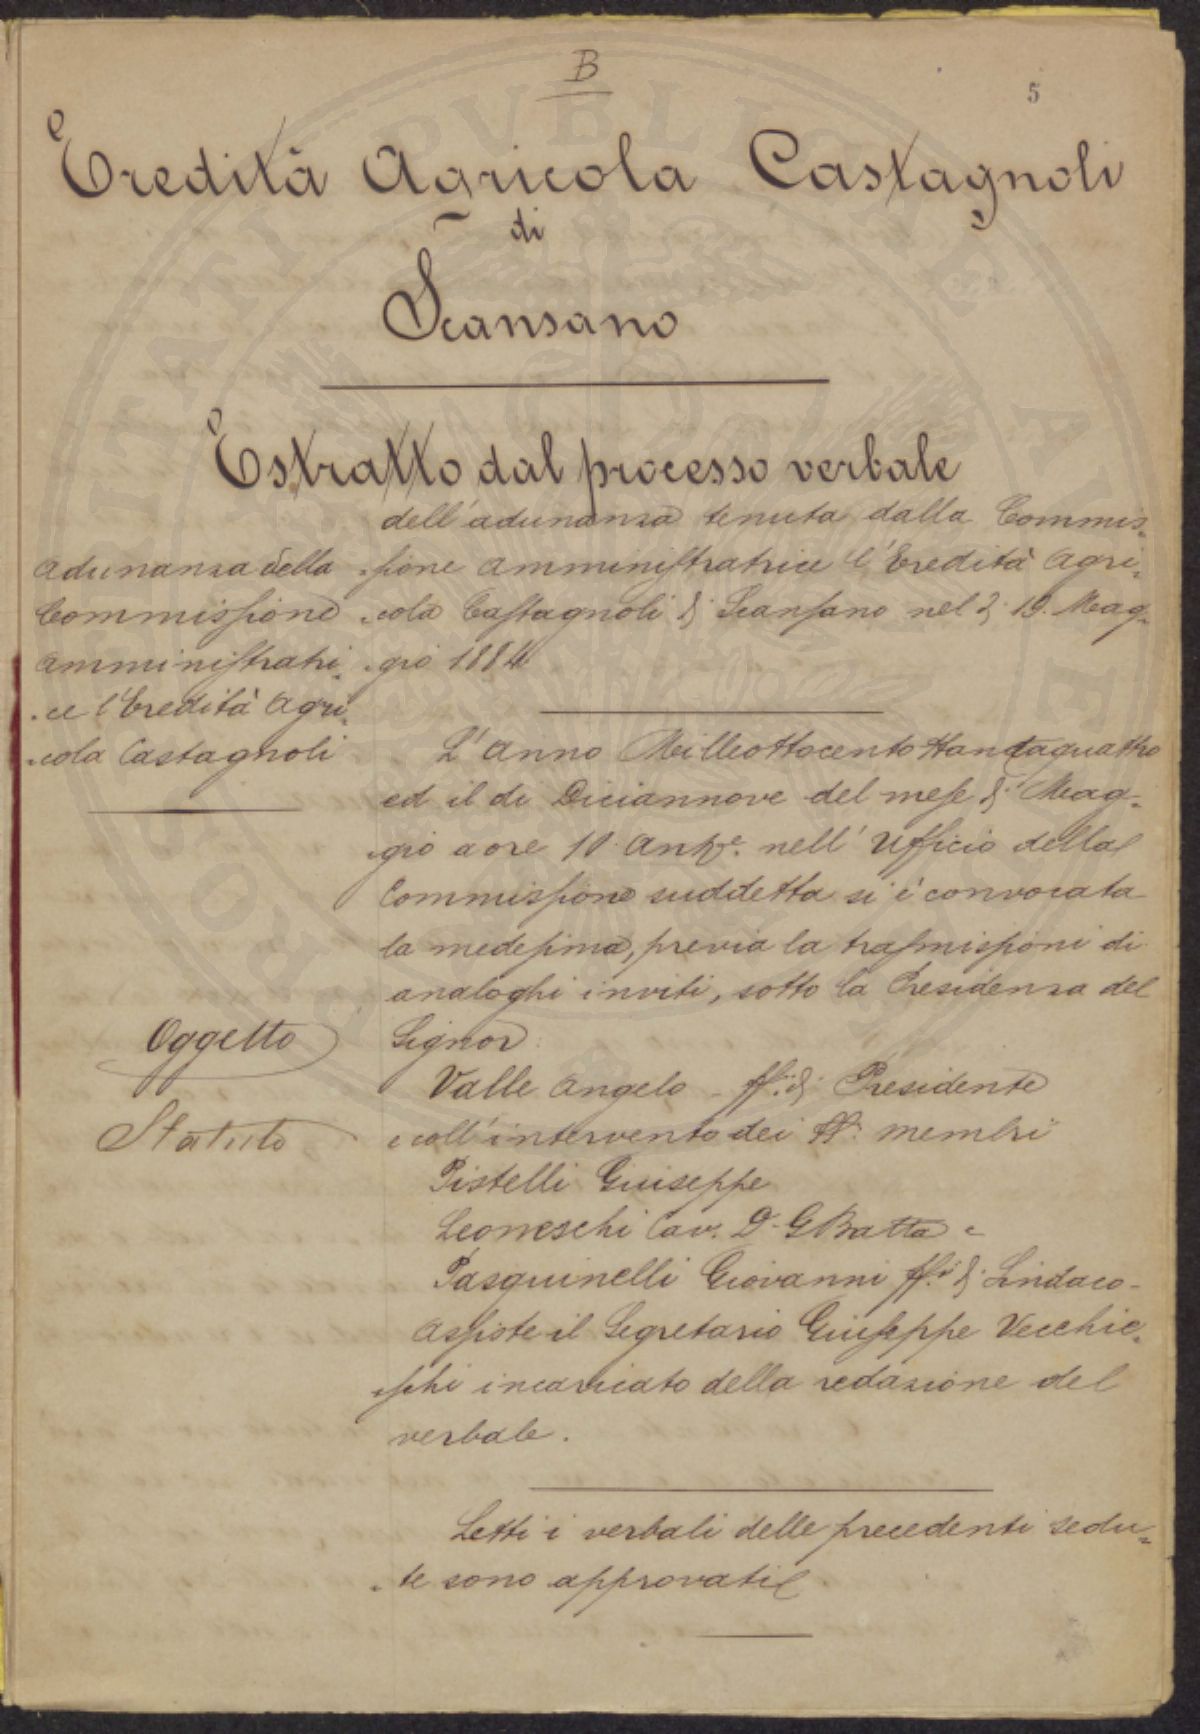 B
5
Eredità Agricola Castagnoli
di
Scansano
Estratto dal processo verbale
dell'adunanza tenuta dalla Commis-
sione amministratrice l'Eredità Agri-
cola Castagnoli di Scansano nel dì 19. Mag-
gio 1884
Adunanza della
Commissione
amministratri-
ce l'Eredità Agri-
cola Castagnoli
L'anno Milleottocentottantaquattro
ed il dì Diciannove del mese di Mag-
gio a ore 10 ant.e nell'Ufficio della
Commissione suddetta si è convocata
la medesima, previa la trasmissioni di
analoghi inviti, sotto la Presidenza del
Signor
Oggetto
Statuto
Valle Angelo - ff.i di Presidente
coll'intervento dei SS.i membri
Pistelli Giuseppe
Leoneschi Cav. D. GBatta e
Pasquinelli Giovanni ff.i di Sindaco -
Assiste il Segretario Giuseppe Vecchie-
schi incaricato della redazione del
verbale.
Letti i verbali delle precedenti sedu-
te sono approvati